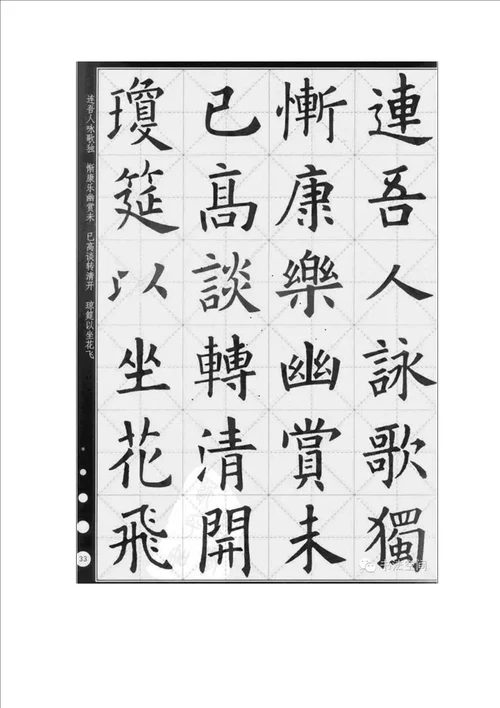 連吾人詠歌獨
慚康樂幽賞未
已高談轉清開
瓊筵以坐花飛
连吾人咏歌独 惭康乐幽赏未 已高谈转清开 琼筵以坐花飞
33
书法空间